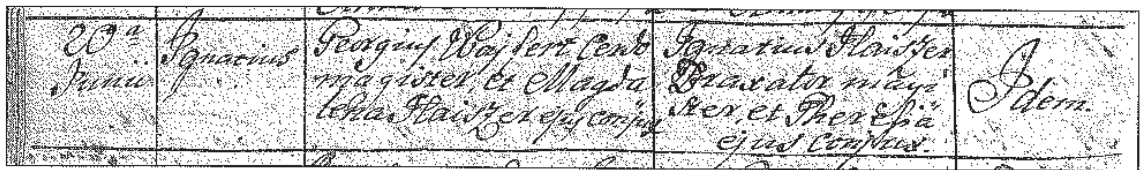 20ª
Junii
Ignatius
Georgius Wajfert Cerdo
magister, et Magda
lena Flaiszer ejus conjux
Ignatius Flaiszer
Braxator magi
ster, et Theresia
ejus Conjux
Idem.